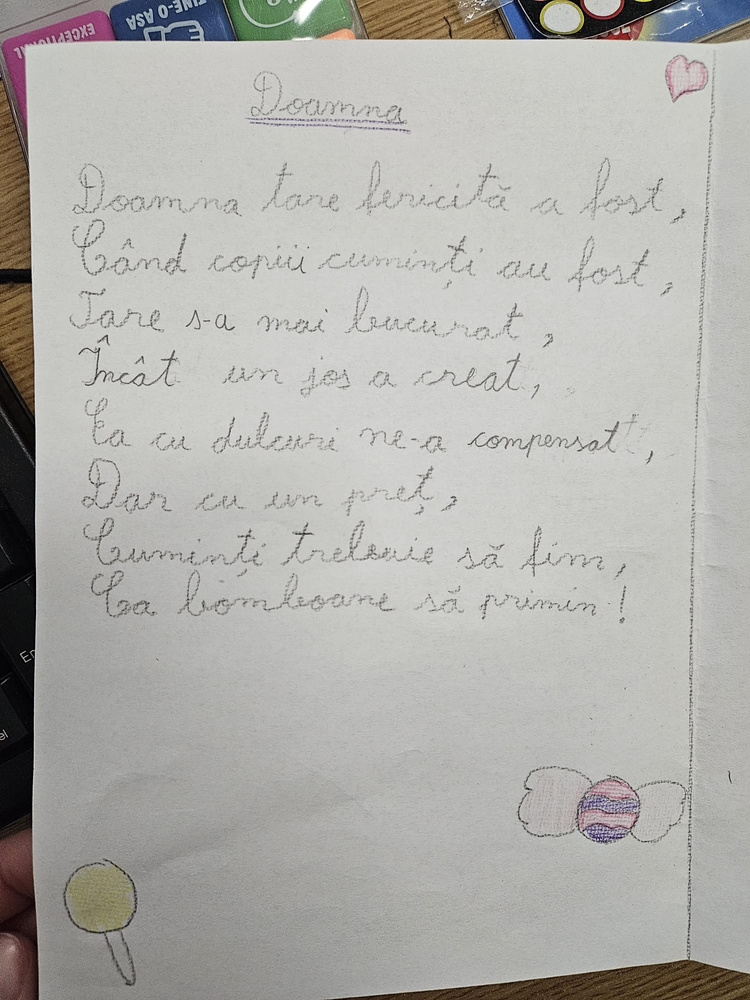 EXCEPȚIONAL
ȚINE-O AȘA
Doamna
Doamna tare fericită a fost,
Când copiii cuminți au fost,
Tare s-a mai bucurat,
Încât un jos a creat,
Ea cu dulcuri ne-a compensat,
Dar cu un preț,
Cuminți trebuie să fim,
Ca bomboane să primin!